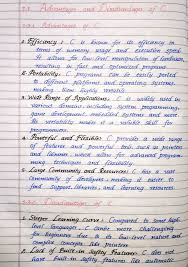 2.3. Advantages and Disadvantages of C
2.3.1 Advantages of C
1. Efficiency : C is known for its efficiency in
terms of memory usage and execution speed
it allows for low-level manipulation of hardware,
resulting in fast and optimized programs.
2. Portability: C programs can be easily ported
to different platforms and operating systems,
making them highly versatile
3. Wide Range of Applications: C is widely used in
various domains, including system programming,
game development, embedded systems and more
Its versatility makes it a valuable skill for
programmers.
4. Powerful and Flexible: C provides a wide range
of features and powerful tools, such as pointers
and libraries, which allow for advanced program-
ming techniques and flexibility.
5. Large Community and Resources: C has a vast
community of developers, making it easier to
find support, libraries, and learning resources.
2.3.2. Disadvantages of C
1. Steeper Learning Curve: Compared to some high-
level languages, C can be more challenging
for beginners due to its low-level nature and
complex concepts like pointers
2. Lack of Built-in Safety Features: C does not
have built-in safety features like automatic